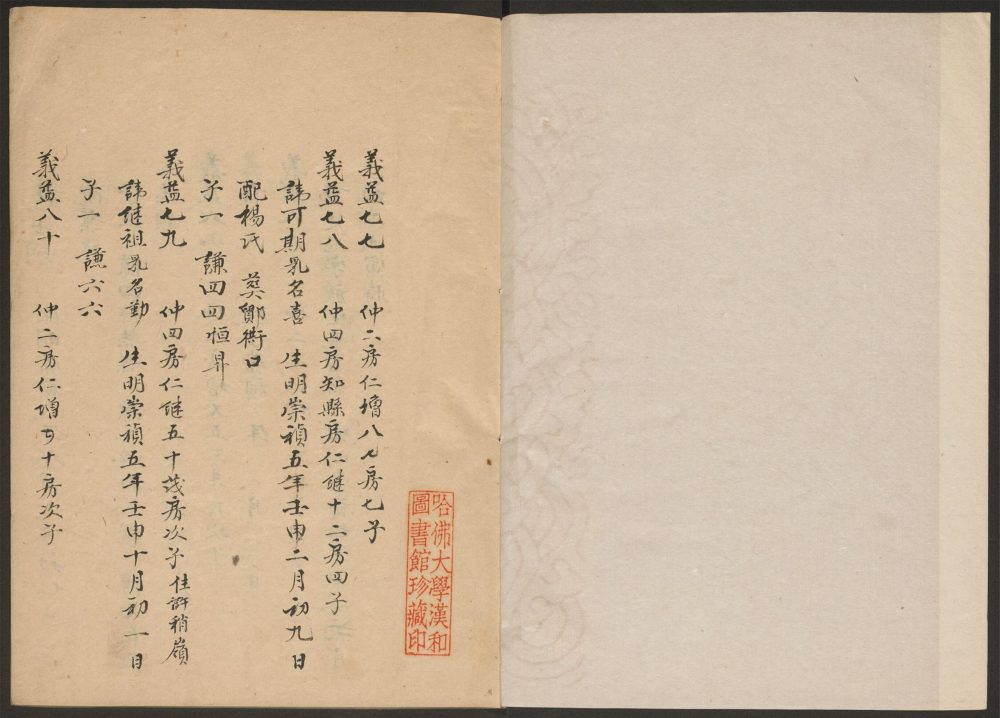 義益七七 仲二房仁增八七房七子
義益七八 仲四房知縣房仁继十二房四子
諱可期乳名喜 生明崇禎五年壬申二月初九日
配楊氏 葬鄭衕口
子一 謙四四恒昇
義益七九 仲四房仁继五十茂房次子住許稍嶺
諱继祖乳名勤 生明崇禎五年壬申十月初一日
子一 謙六六
義益八十 仲二房仁增十房次子
哈佛大學漢和
圖書館珍藏印